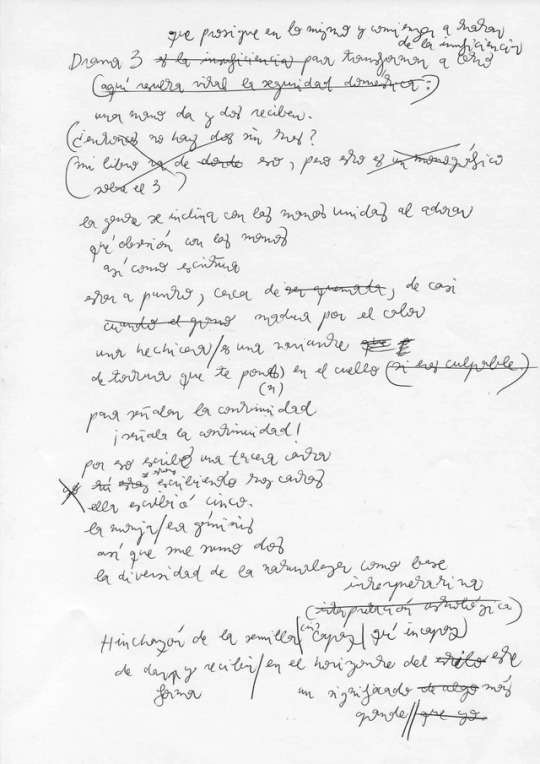 que prosigue en lo mismo y comienzan a tratar
de la insuficiencia
Drama 3 es la insuficiencia para transformar a otro
(aquí resulta vital la seguridad domestica:)
una mano da y dos reciben.
(¿entonces no hay dos sin tres?
(mi libro va de donde eso, pero esto es un monográfico
sobre el 3)
la gente se inclina con las manos unidas al adorar
qué obsesión con las manos
así como escritura
estar a punto, cerca de ser quemada, de casi
cuando el grano madura por el color
una hechicera/es una variante que
de tortura que te pones en el cuello (si eres culpable)
(n)
para señalar la continuidad
¡señala la continuidad!
por eso escribe una tercera carta
escribiendo tres cartas
ella escribió cinco.
la monja/era géminis
así que me sumo dos
la diversidad de la naturaleza como base
(interpretación astrológica)
Hinchazón de la semilla/(sin) capaz/qué incapaz)
de dar y recibir/en el horizonte del estilo este
forma un significado de algo más
grande//que yo.